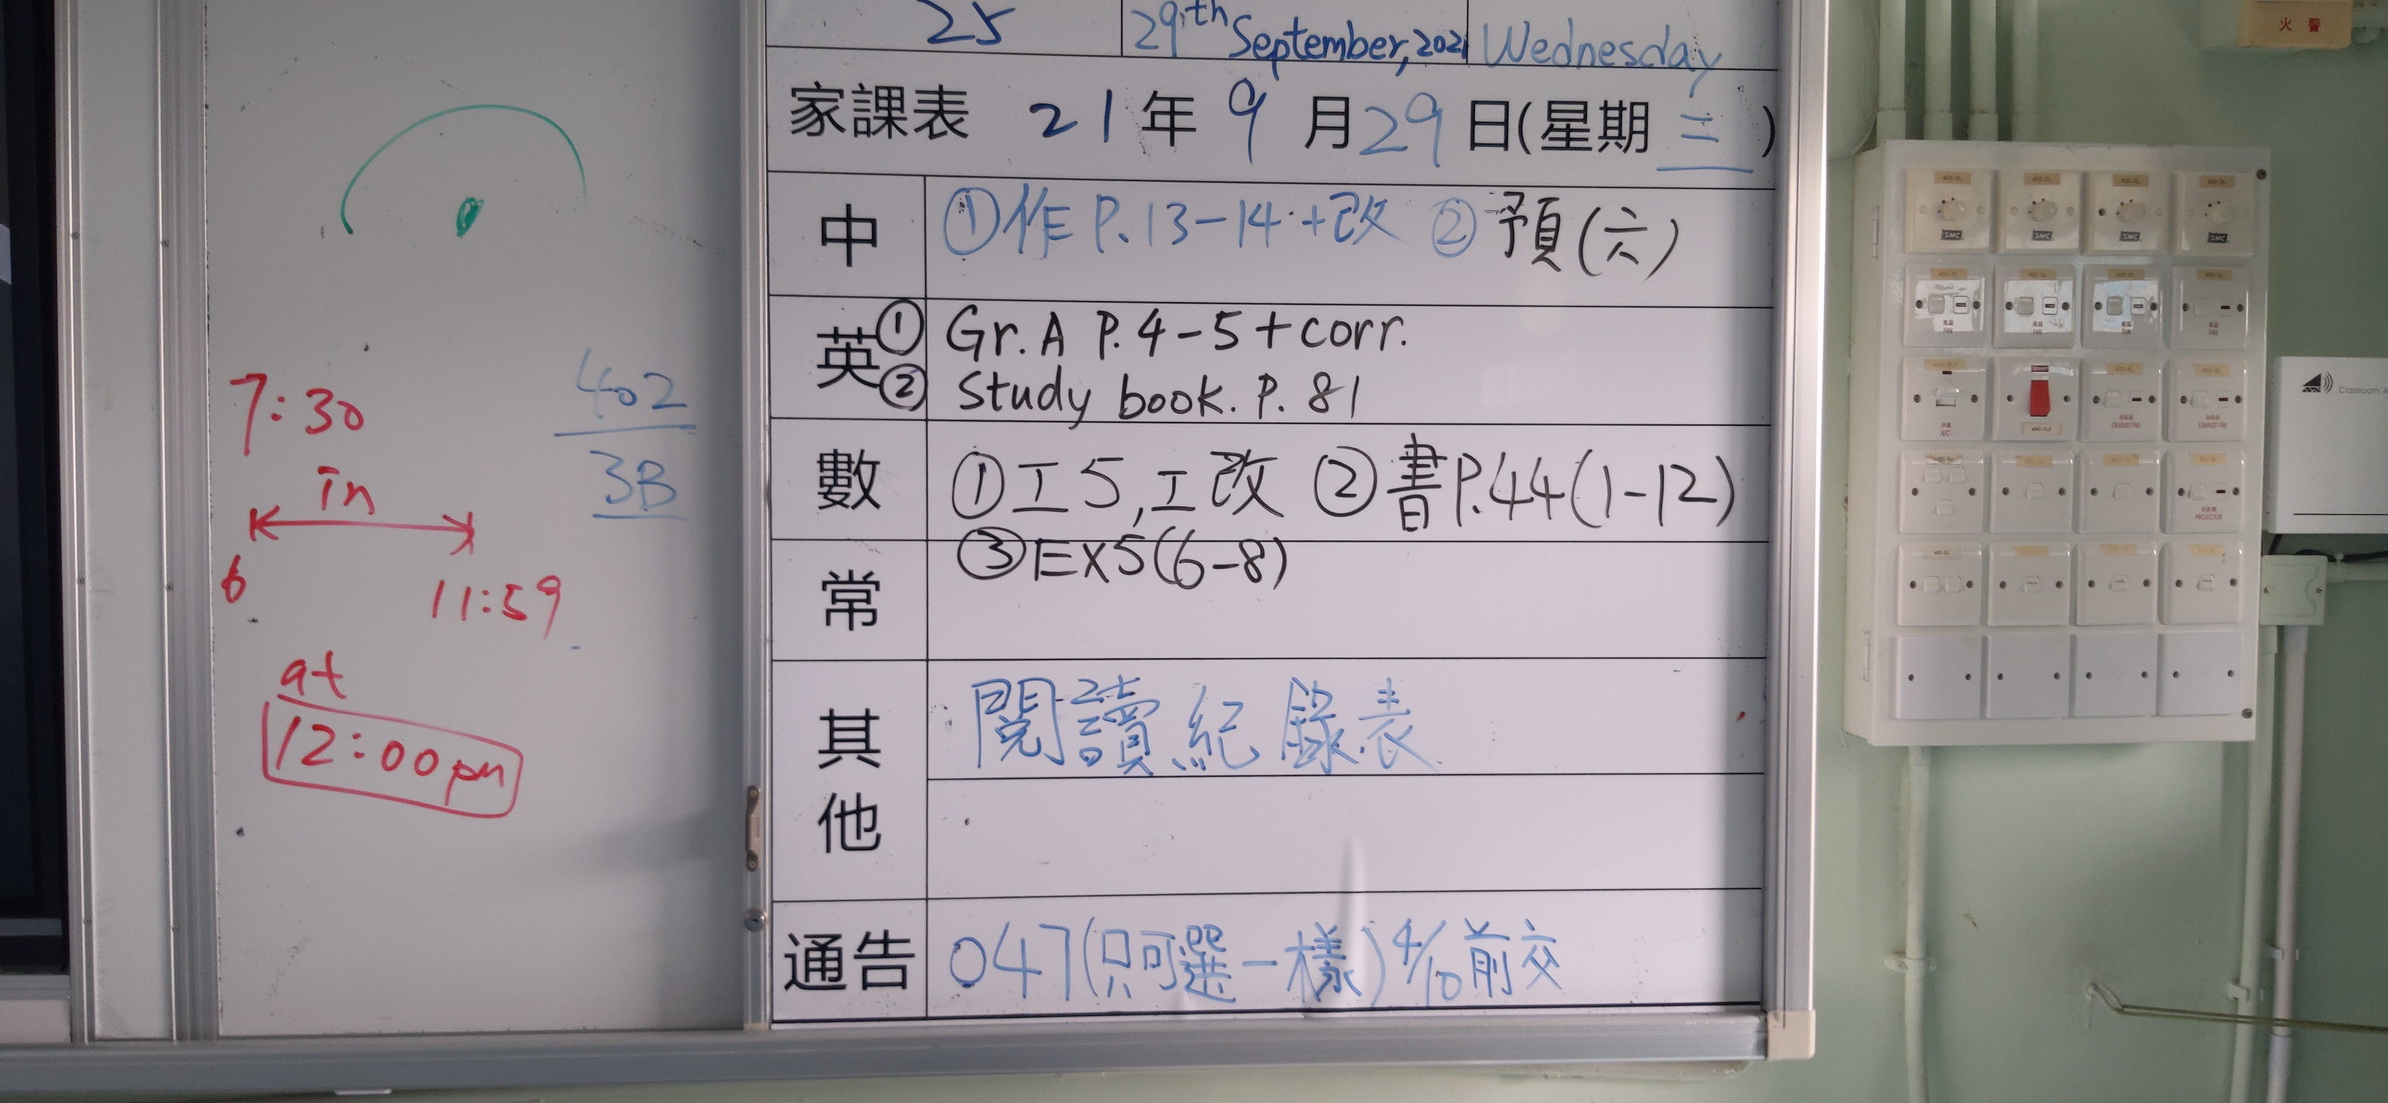 7:30
in
6
11:59
at
12:00pm
402
3B
25 29th September, 2021 Wednesday
家課表 21年9月29日(星期三)
中 ①作P.13-14+改 ②預(六)
英 ① Gr.A P.4-5+corr.
② Study book. P. 81
數 ①工5,工改 ②書P.44(1-12)
③EX5(6-8)
常
其他 閱讀紀錄表
通告 047(只可選一樣)4/10前交
火警
SMC SMC SMC SMC
FAN FAN FAN FAN
Classroom